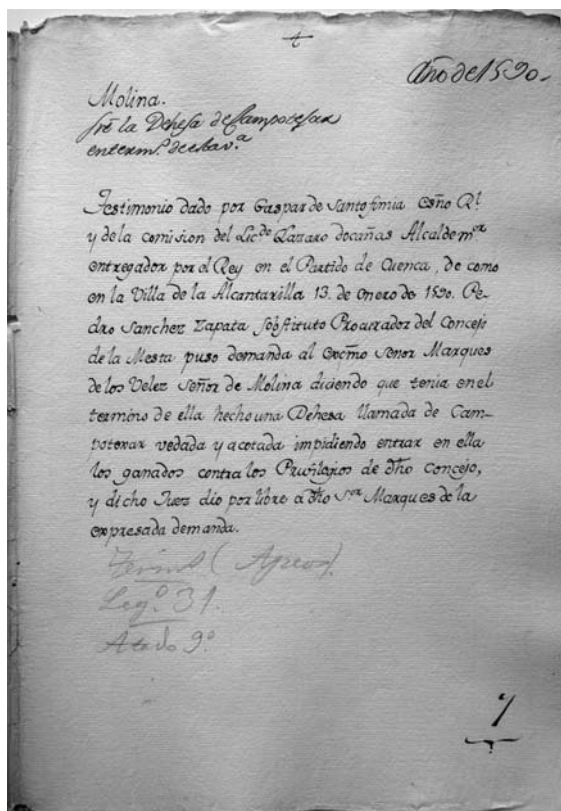 Año de 1590.
Molina.
sre. la Dehesa de Campotejar
en term.º de esta v.ª
Testimonio dado por Gaspar de Santofimia Esño Rl.
y de la comision del Lic.do Lazaro docañas Alcalde m.or
entregador por el Rey en el Partido de Cuenca, de como
en la Villa de la Alcantarilla 13. de enero de 1590. Pe-
dro Sanchez Zapata sobstituto Procurador del Concejo
de la Mesta puso demanda al excmo senor Marques
de los Velez señor de Molina diciendo que tenia en el
termino de ella hecho una Dehesa llamada de Cam-
potexar vedada y acotada impidiendo entrar en ella
los ganados contra los Privilegios de dho Concejo,
y dicho Juez dio por libre a dho s.or Marques de la
expresada demanda.
(Apeos)
Leg.º 31.
Atado 9º
7